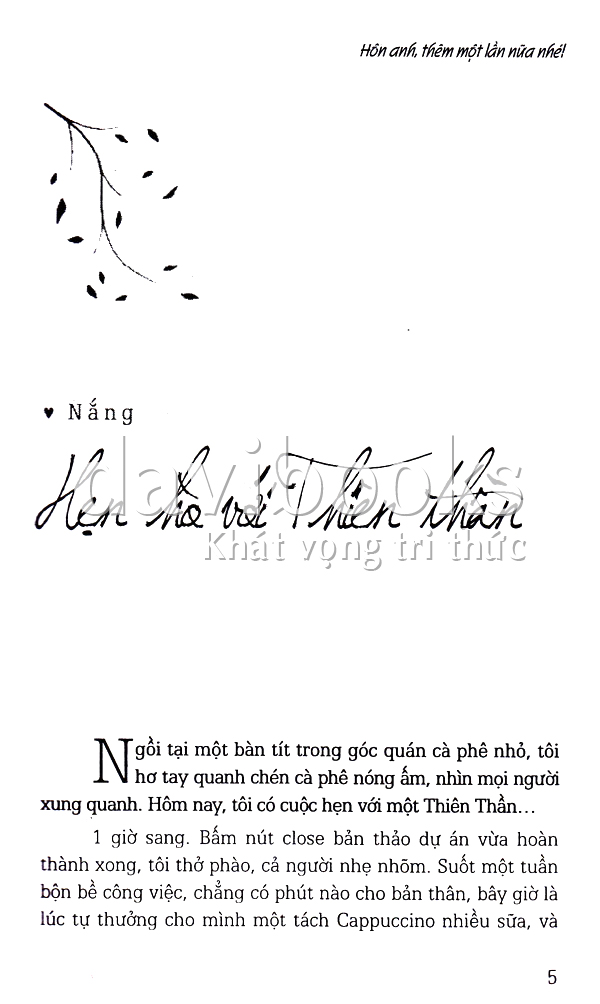 Hôn anh, thêm một lần nữa nhé!
♥ Nắng
davibooks
Hẹn hò với Thiên thần
Khát vọng tri thức
Ngồi tại một bàn tít trong góc quán cà phê nhỏ, tôi
hơ tay quanh chén cà phê nóng ấm, nhìn mọi người
xung quanh. Hôm nay, tôi có cuộc hẹn với một Thiên Thần...
1 giờ sang. Bấm nút close bản thảo dự án vừa hoàn
thành xong, tôi thở phào, cả người nhẹ nhõm. Suốt một tuần
bộn bề công việc, chẳng có phút nào cho bản thân, bây giờ là
lúc tự thưởng cho mình một tách Cappuccino nhiều sữa, và
5